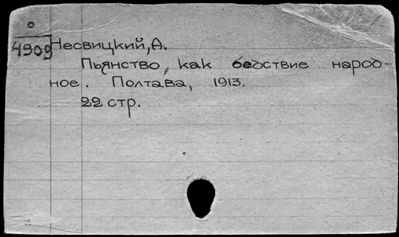 о
4909
Несвицкий, А.
Пьянство, как бедствие народ-
ное. Полтава, 1913.
22 стр.